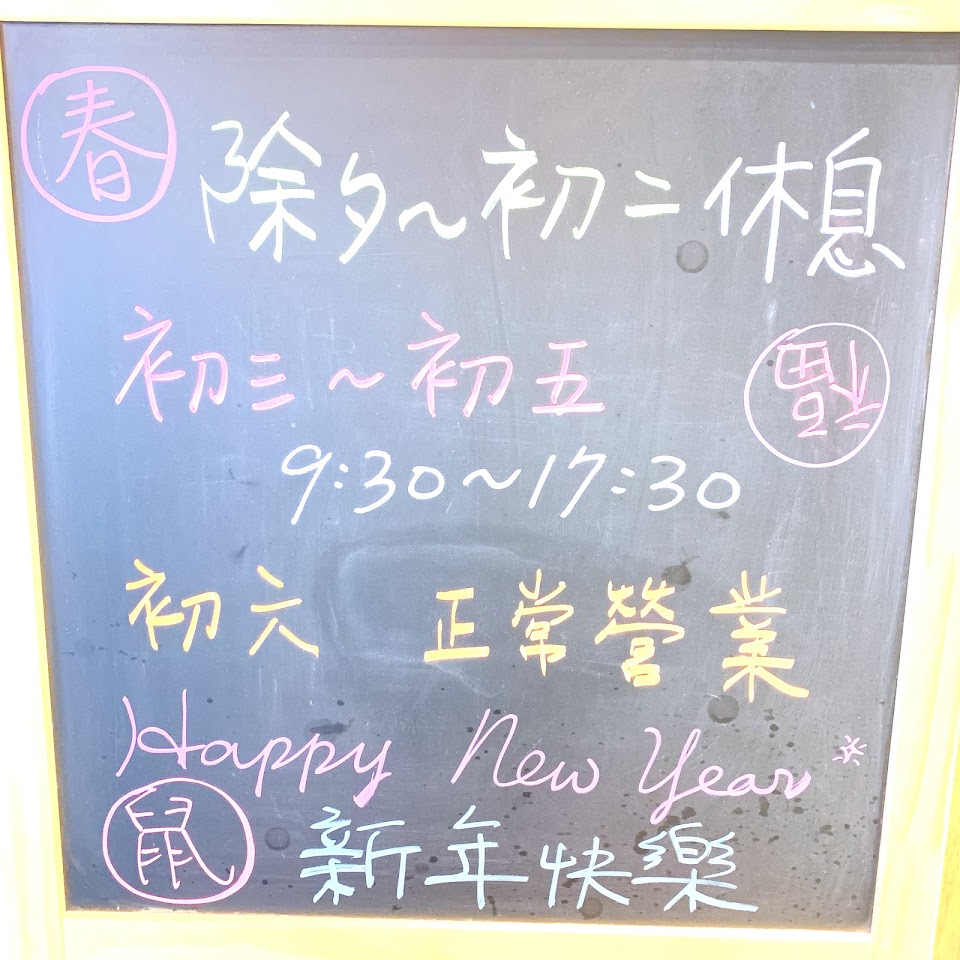 春
除夕～初二休息
初三～初五
福
9:30～17:30
初六 正常營業
Happy New Year
鼠
新年快樂